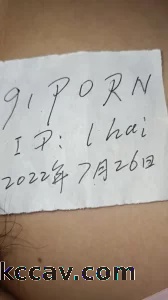 91PORN
ID: lhai
2022年7月26日
kccav.com